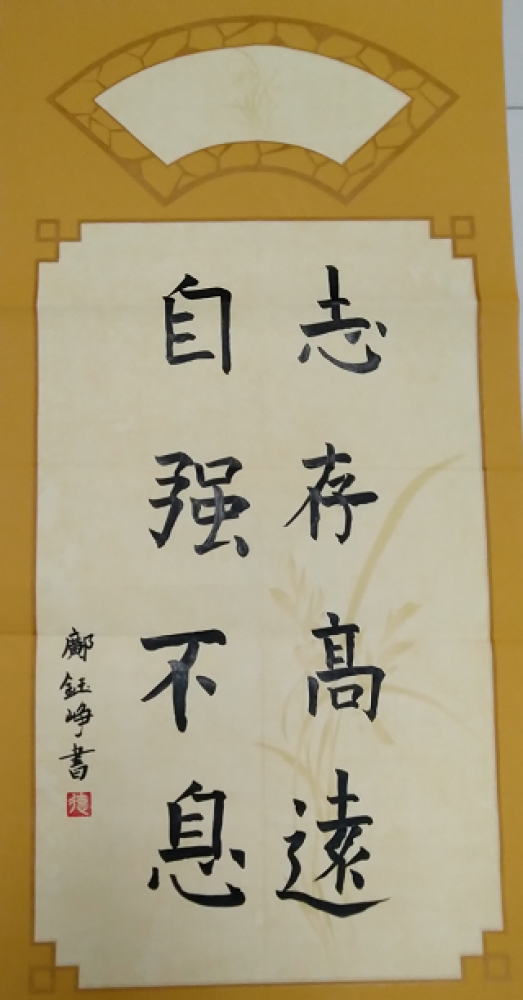 志存高遠
自强不息
鄺鈺峥書